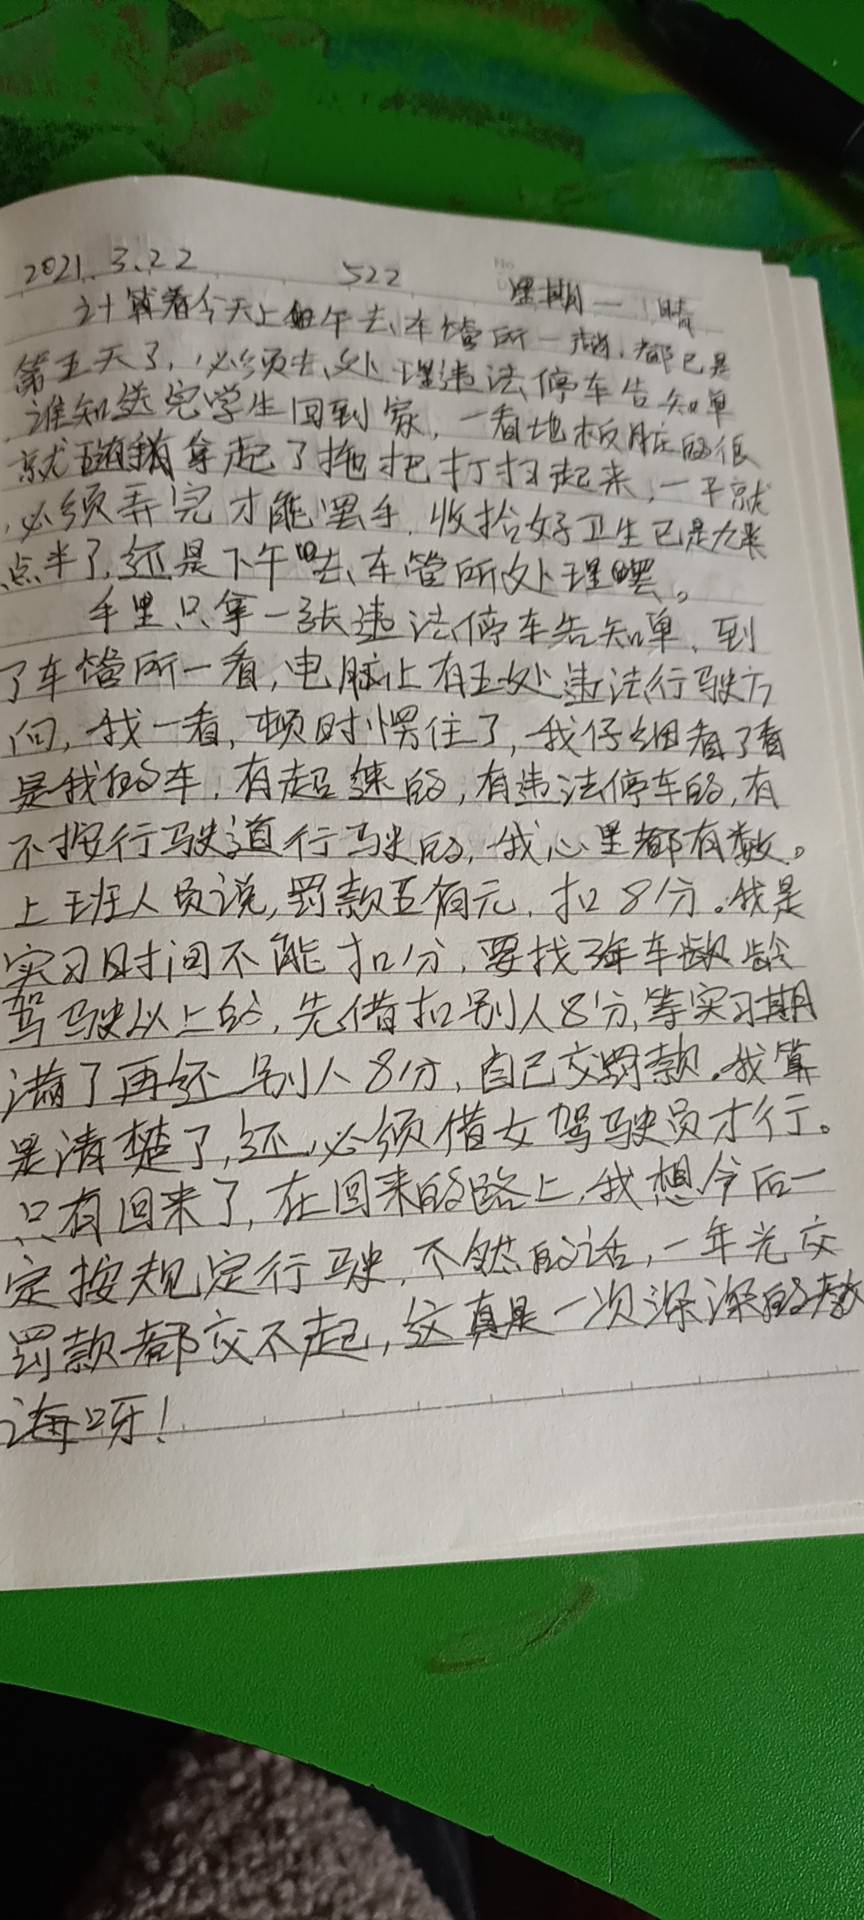 2021.3.22 522 星期一 晴
计算着今天上午去车管所一趟,都已是
第五天了,必须去处理违法停车告知单
谁知送完学生回到家,一看地板脏的很
就随拿起了拖把打扫起来,一干就
必须弄完才能罢手,收拾好卫生已是九
点半了,还是下午去车管所处理罢。
手里只拿一张违法停车告知单,到
了车管所一看,电脑上有五处违法行驶方
向,我一看,顿时愣住了,我仔细看了看
是我的车,有超速的,有违法停车的,有
不按行驶道行驶的,我心里都有数。
上班人员说,罚款五佰元,扣8分。我是
实习时间不能扣分,要找3年车龄
驾驶以上的,先借扣别人8分,等实习期
满了再还别人8分,自己交罚款。我算
是清楚了,还必须借女驾驶员才行。
只有回来了,在回来的路上,我想今后一
定按规定行驶,不然的话,一年光交
罚款都交不起,这真是一次深深的教
诲呀!